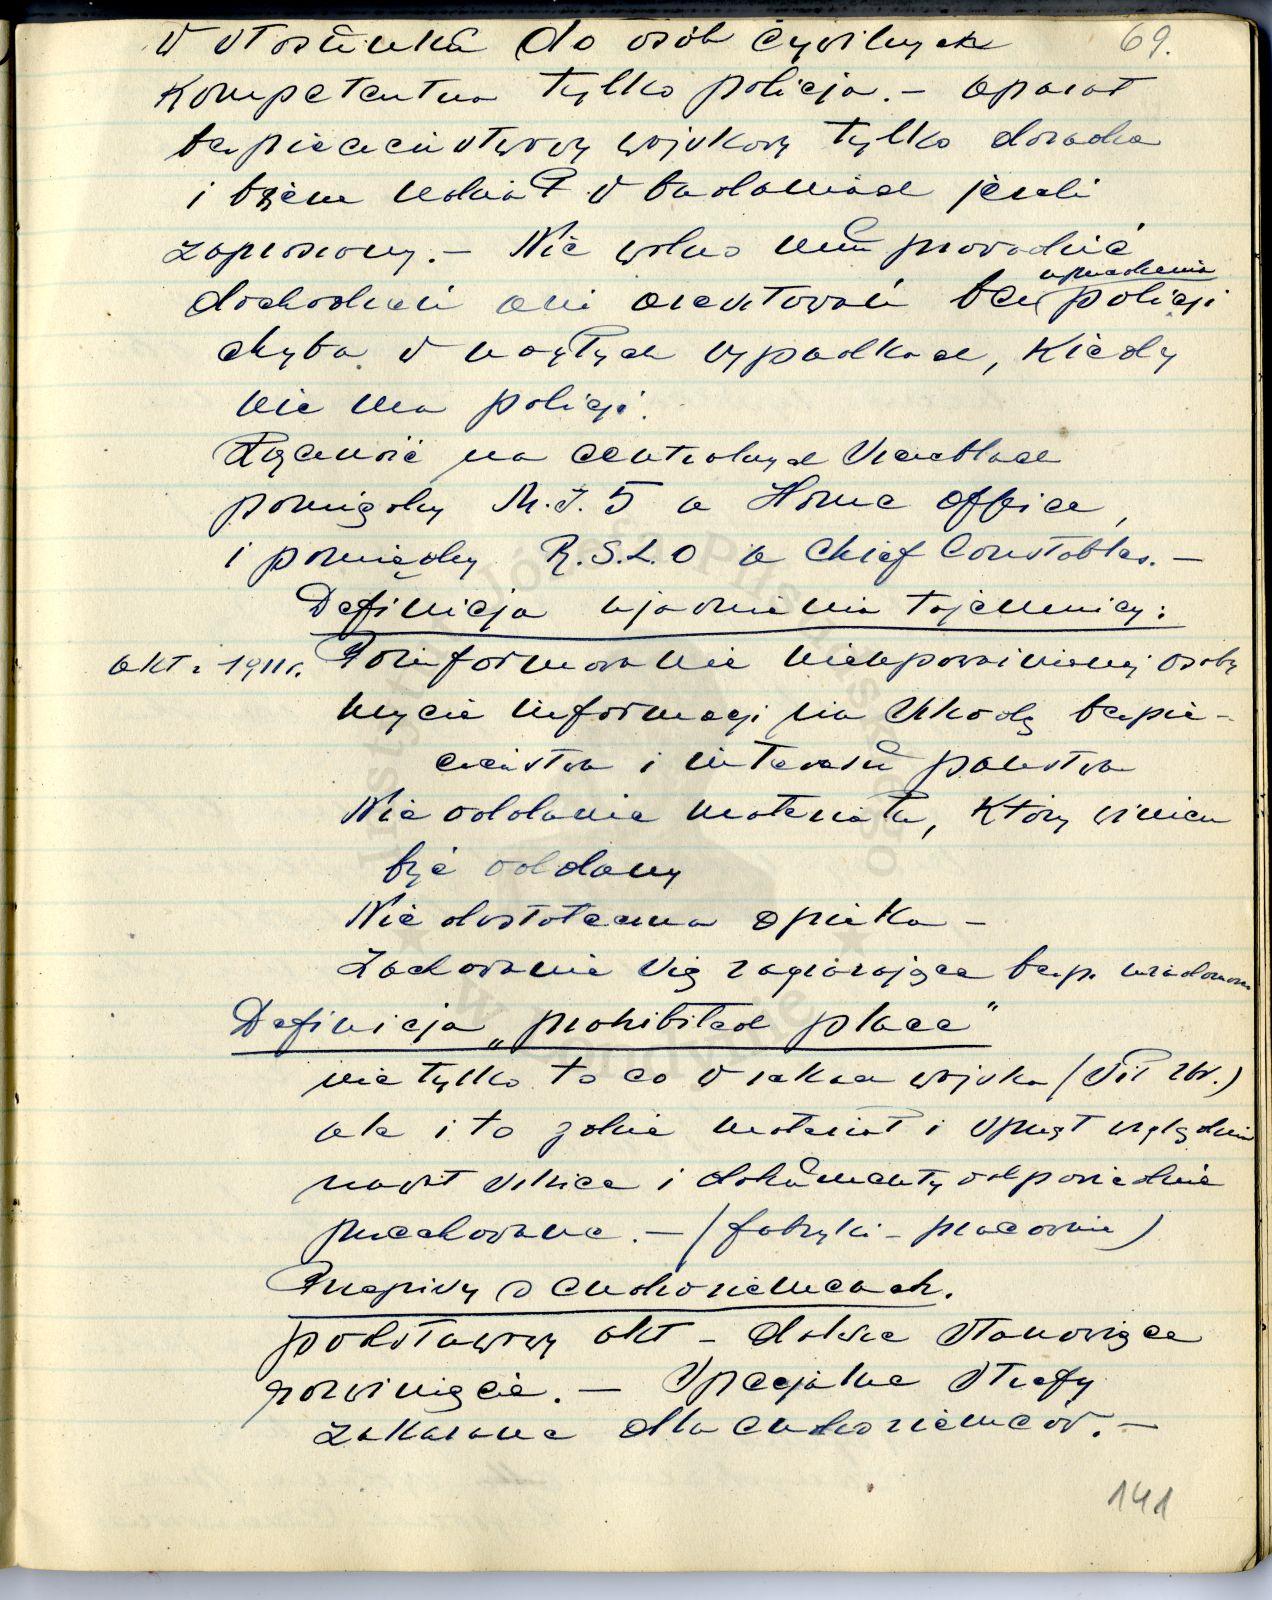 69.
W stosunku do osób cywilnych
kompetentna tylko policja. - aparat
bezpieczeństwowy wojskowy tylko doradca
i bierze udział w badaniach jeżeli
zaproszony. - Nie wolno mu prowadzić
dochodzeń ani aresztować bez policji
chyba w nagłych wypadkach, kiedy
nie ma policji.
Łączność na centralnych szczeblach
pomiędzy M.I.5 a Home Office,
i pomiędzy R.S.L.O a Chief Constables. -
Definicja ujawnienia tajemnicy:
akt z 1911r. Poinformowanie nieupoważnionej osoby
użycie informacji na szkodę bezpie-
czeństwa i interesu państwa
Nie oddanie materiału, który winien
być oddany
Nie dostateczna opieka -
Zachowanie się zagrażające bezp. wiadomom
Definicja „prohibited place"
nie tylko to co w rękach wojska (Sił Zbr.)
ale i to gdzie materiał i sprzęt względnie
nawet szkice i dokumenty odpowiednie
przechowane. - (fabryki - pracownie)
Przepisy o cudzoziemcach.
podstawowy akt - dalsze stanowiące
rozwinięcie. - Specjalne strefy
zakazane dla cudzoziemców. -
141